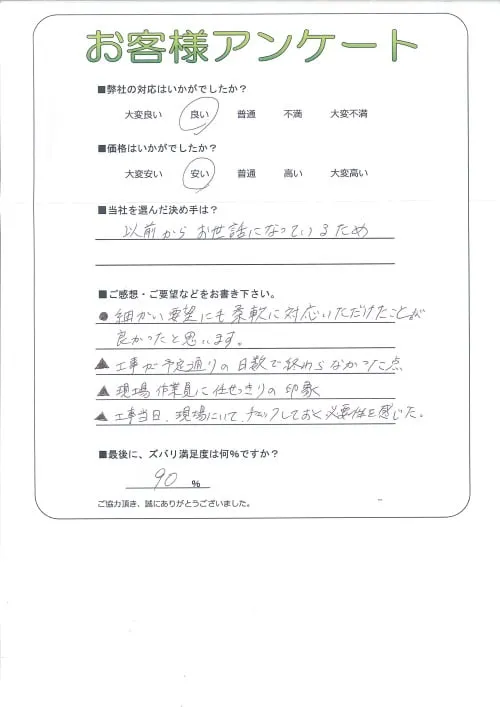 お客様アンケート
■弊社の対応はいかがでしたか？
大変良い 良い 普通 不満 大変不満
■価格はいかがでしたか？
大変安い 安い 普通 高い 大変高い
■当社を選んだ決め手は？
以前からお世話になっているため
■ご感想・ご要望などをお書き下さい。
●細かい要望にも柔軟に対応いただけたことが
良かったと思います。
▲工事が予定通りの日数で終わらなかった点
▲現場作業員に任せっきりの印象
▲工事当日、現場にいて、チェックしておく必要性を感じた。
■最後に、ズバリ満足度は何%ですか？
90 %
ご協力頂き、誠にありがとうございました。